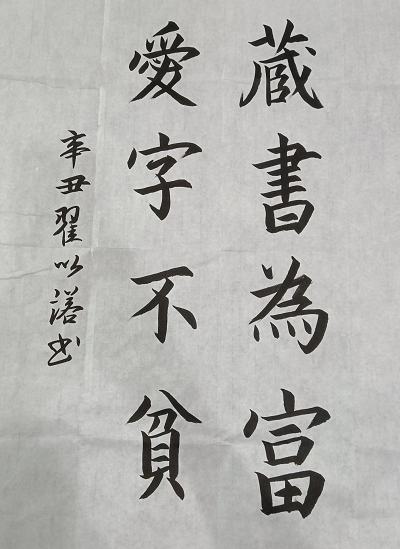 蔵書為富
愛字不貧
辛丑翟以諾书